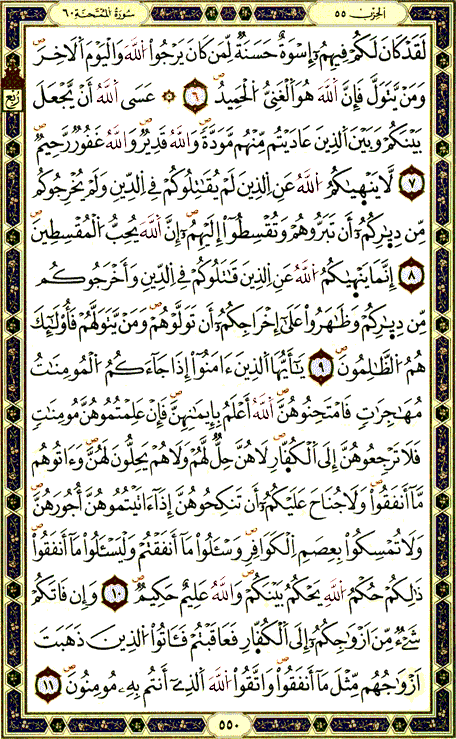 الحِزْب ٥٥
سُورَةُ المُمْتَحنَةِ ٦٠
لَقَدْ كَانَ لَكُمْ فِيهِمُۥٓ إِسْوَةٌ حَسَنَةٌ لِّمَن كَانَ يَرْجُواْ اُللَّهَ وَالْيَوْمَ اَلَاخِرَۖ
وَمَنْ يَّتَوَلَّ فَإِنَّ اَللَّهَ هُوَ اَلْغَنِيُّ اُلْحَمِيدُۖ ٦ ۞ عَسَى اَللَّهُ أَنْ يَّجْعَلَ
بَيْنَكُمْ وَبَيْنَ اَلذِينَ عَادَيْتُم مِّنْهُم مَّوَدَّةٗۖ وَاللَّهُ قَدِيرٞۖ وَاللَّهُ غَفُورٞ رَّحِيمٞۖ
٧ لَّا يَنْه۪يٰكُمُ اُللَّهُ عَنِ اِلذِينَ لَمْ يُقَٰتِلُوكُمْ فِے اِلدِّينِ وَلَمْ يُخْرِجُوكُم
مِّن دِيٰ۪رِكُمُۥٓ أَن تَبَرُّوهُمْ وَتُقْسِطُوٓاْ إِلَيْهِمُۥٓۖ إِنَّ اَللَّهَ يُحِبُّ اُلْمُقْسِطِينَۖ
٨ إِنَّمَا يَنْه۪يٰكُمُ اُللَّهُ عَنِ اِلذِينَ قَٰتَلُوكُمْ فِے اِلدِّينِ وَأَخْرَجُوكُم
مِّن دِيٰ۪رِكُمْ وَظَٰهَرُواْ عَلَىٰٓ إِخْرَاجِكُمُۥٓ أَن تَوَلَّوْهُمْۖ وَمَنْ يَّتَوَلَّهُمْ فَأُوْلَٰٓئِكَ
هُمُ اُلظَّٰلِمُونَۖ ٩ يَٰٓأَيُّهَا اَلذِينَ ءَامَنُوٓاْ إِذَا جَآءَكُمُ اُلْمُومِنَٰتُ
مُهَٰجِرَٰتٖ فَامْتَحِنُوهُنَّۖ اَللَّهُ أَعْلَمُ بِإِيمَٰنِهِنَّۖ فَإِنْ عَلِمْتُمُوهُنَّ مُومِنَٰتٖ
فَلَا تَرْجِعُوهُنَّ إِلَى اَلْكُفّ۪ارِۖ لَا هُنَّ حِلّٞ لَّهُمْ وَلَا هُمْ يَحِلُّونَ لَهُنَّۖ وَءَاتُوهُم
مَّآ أَنفَقُواْۖ وَلَا جُنَاحَ عَلَيْكُمُۥٓ أَن تَنكِحُوهُنَّ إِذَآ ءَاتَيْتُمُوهُنَّ أُجُورَهُنَّۖ
وَلَا تُمْسِكُواْ بِعِصَمِ اِلْكَوَافِرِۖ وَسْـَٔلُواْ مَآ أَنفَقْتُمْ وَلْيَسْـَٔلُواْ مَآ أَنفَقُواْۖ
ذَٰلِكُمْ حُكْمُ اُللَّهِ يَحْكُمُ بَيْنَكُمْۖ وَاللَّهُ عَلِيمٌ حَكِيمٞۖ ١٠ وَإِن فَاتَكُمْ
شَےْءٞ مِّنَ اَزْوَٰجِكُمُۥٓ إِلَى اَلْكُفّ۪ارِ فَعَاقَبْتُمْ فَـَٔاتُواْ اُلذِينَ ذَهَبَتَ
اَزْوَٰجُهُم مِّثْلَ مَآ أَنفَقُواْۖ وَاتَّقُواْ اُللَّهَ اَلذِےٓ أَنتُم بِهِۦ مُومِنُونَۖ ١١
ربع
٥٥٠